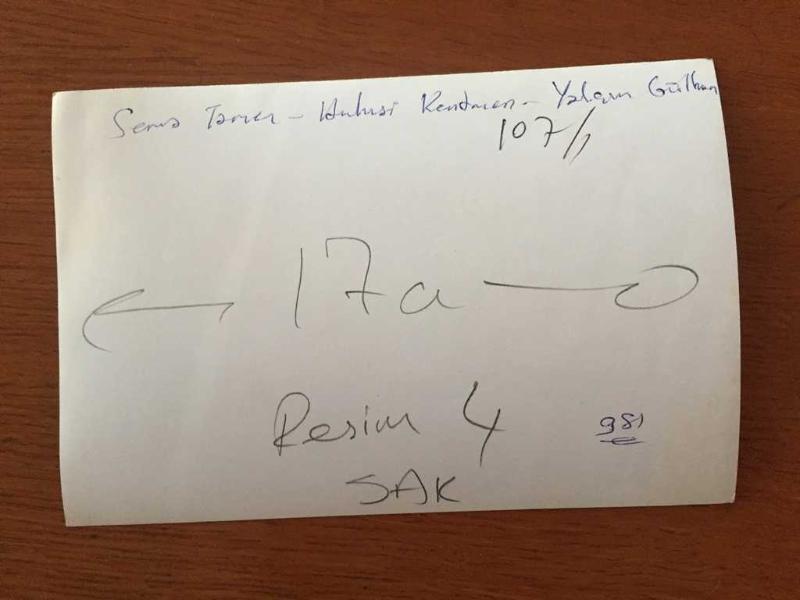 Sema Taner - Hulusi Kentmen - Yalçın Gülhan
107/1
17a
Resim 4
981
SAK